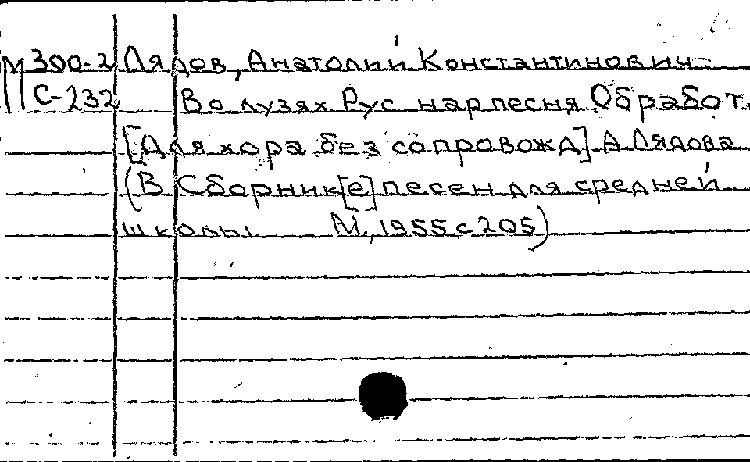 М 300-2 Лядов, Анатолий Константинович
С-232 Во лузях Рус нар песня Обработ.
[Для хора без сопровожд] А Лядова
(В Сборник[е] песен для средней
школы М, 1955 с 205)